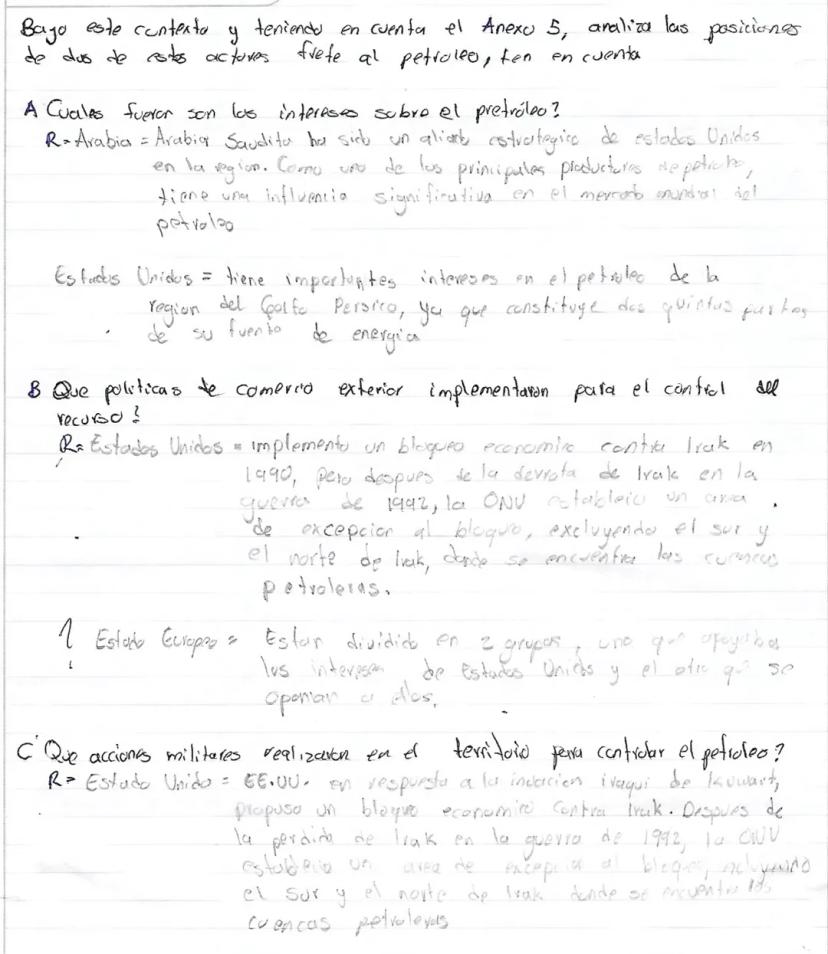 Bajo este contexto y teniendo en cuenta el Anexo 5, analiza las posiciones
de dos de estos actores frete al petroleo, ten en cuenta
A Cuales fueron son los intereses sobre el pretróleo?
R= Arabia = Arabia Saudita ha sido un aliado estrategico de estados Unidos
en la region. Como uno de los principales productores de petroleo,
tiene una influencia significativa en el mercado mundial del
petroleo
Estados Unidos = tiene importantes intereses en el petroleo de la
region del Golfo Persico, ya que constituye dos quintas partes
de su fuente de energia
B Que politicas de comercio exterior implementaron para el control del
recurso?
R= Estados Unidos = implemento un bloqueo economico contra Irak en
1990, pero despues de la derrota de Irak en la
guerra de 1992, la ONU establecio un area
de excepcion al bloqueo, excluyendo el sur y
el norte de Irak, donde se encuentra las cuencas
petroleras.
Estado Europeo = Estan dividido en 2 grupos, uno que apoyaba
los intereses de Estados Unidos y el otro que se
oponian a ellos.
C Que acciones militares realizaron en el territoio para controlar el petroleo?
R= Estado Unido = EE.UU. en respuesta a la invacion iraqui de Kuwart,
propuso un bloqueo economico contra Irak. Despues de
la perdida de Irak en la guerra de 1992, la ONU
establecio un area de excepcion al bloqueo,
el sur y el norte de Irak donde se encuentra las
cuencas petroleras